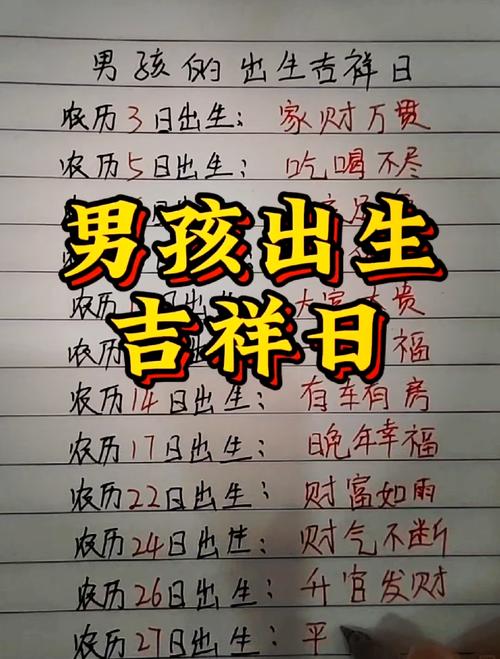 男孩的出生吉祥日
农历3日出生：家财万贯
农历5日出生：吃喝不尽
男孩出生
吉祥日
大富大贵
福
农历14日出生：有车有房
农历17日出生：晚年幸福
农历22日出生：财富如雨
农历24日出生：财气不断
农历26日出生：升官发财
农历27日出生：平